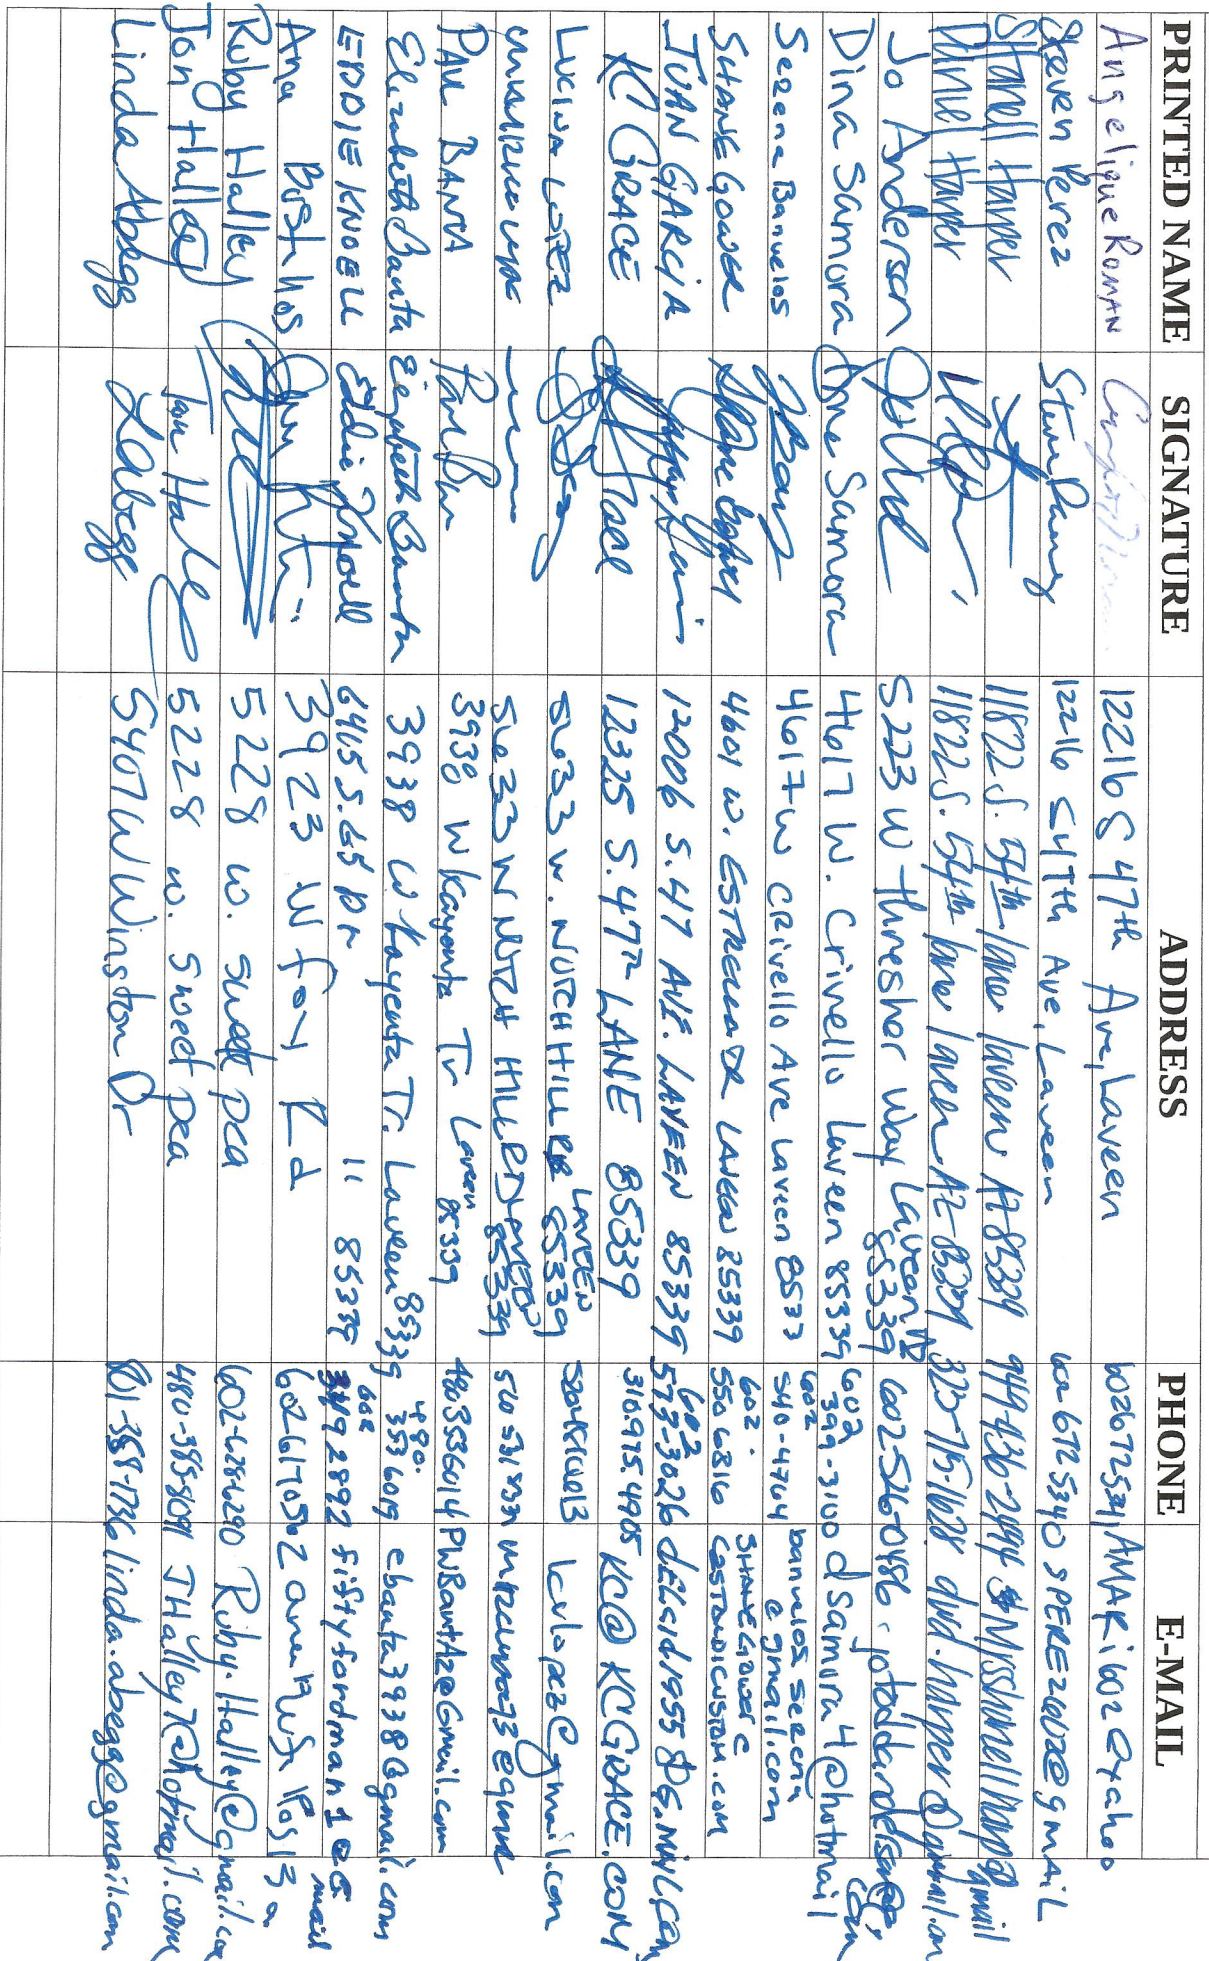 PRINTED NAME SIGNATURE ADDRESS PHONE E-MAIL
Angelique Roman 12216 S 47th Ave, Laveen 6026725341 AMARi602@yahoo
Steven Perez 12216 S 47th Ave, Laveen 602 672 5340 SPEREZ602@gmail
Shanell Harper 11822 S. 54th lane laveen AZ 85339 gmail
Daniel Harper 11822 S. 54th lane laveen AZ 85339 323-715-1628 dvd.harper@gmail.com
Jo Anderson 5223 W Thresher Way Laveen 85339 602-526-0486
Dina Samora Dina Samora 4617 W. Crivello Laveen 85339 602 399-3100 dsamora4@hotmail.com
Serena Banuelos 4617 W Crivello Ave Laveen 8533 602 540-4764 banuelos serena @gmail.com
SHANE GOWER Shane Gower 4601 W. ESTRELLA DR LAVEEN 85339 602. 550 6816 SHANEGOWER@
JUAN GARCIA 12006 S. 47 AVE. LAVEEN 85339 602 573-3026
KC GRACE 12325 S. 47TH LANE 85339 310.975.4905 KC@KCGRACE.COM
LUCINA LOPEZ 5633 W. NOTCH HILL RD LAVEEN 85339 lcvlopez@gmail.com
5633 W NOTCH HILL RD LAVEEN 85339
PAUL BANTA 3938 W Kayenta Tr Laveen 85339 480 3536014 PWBantAz@Gmail.com
Elizabeth Banta Elizabeth Banta 3938 W Kayenta Tr. Laveen 85339 480. 353 6019 ebanta3938@gmail.com
EDDIE KNOELL Eddie Knoell 6415 S. 65 Dr 11 85339 602 fiftyfordman1@Gmail
Ana 3923 W fox Rd 602 617 0562
Ruby Halley 5228 w. sweet pea 602-628-6290 Ruby.Halley@Gmail.com
Jon Halley Jon Halley 5228 w. Sweet pea JHalley7@hotmail.com
Linda Abegg LAbegg 5407 W Winston Dr 801-388-1736 linda.abegg@gmail.com